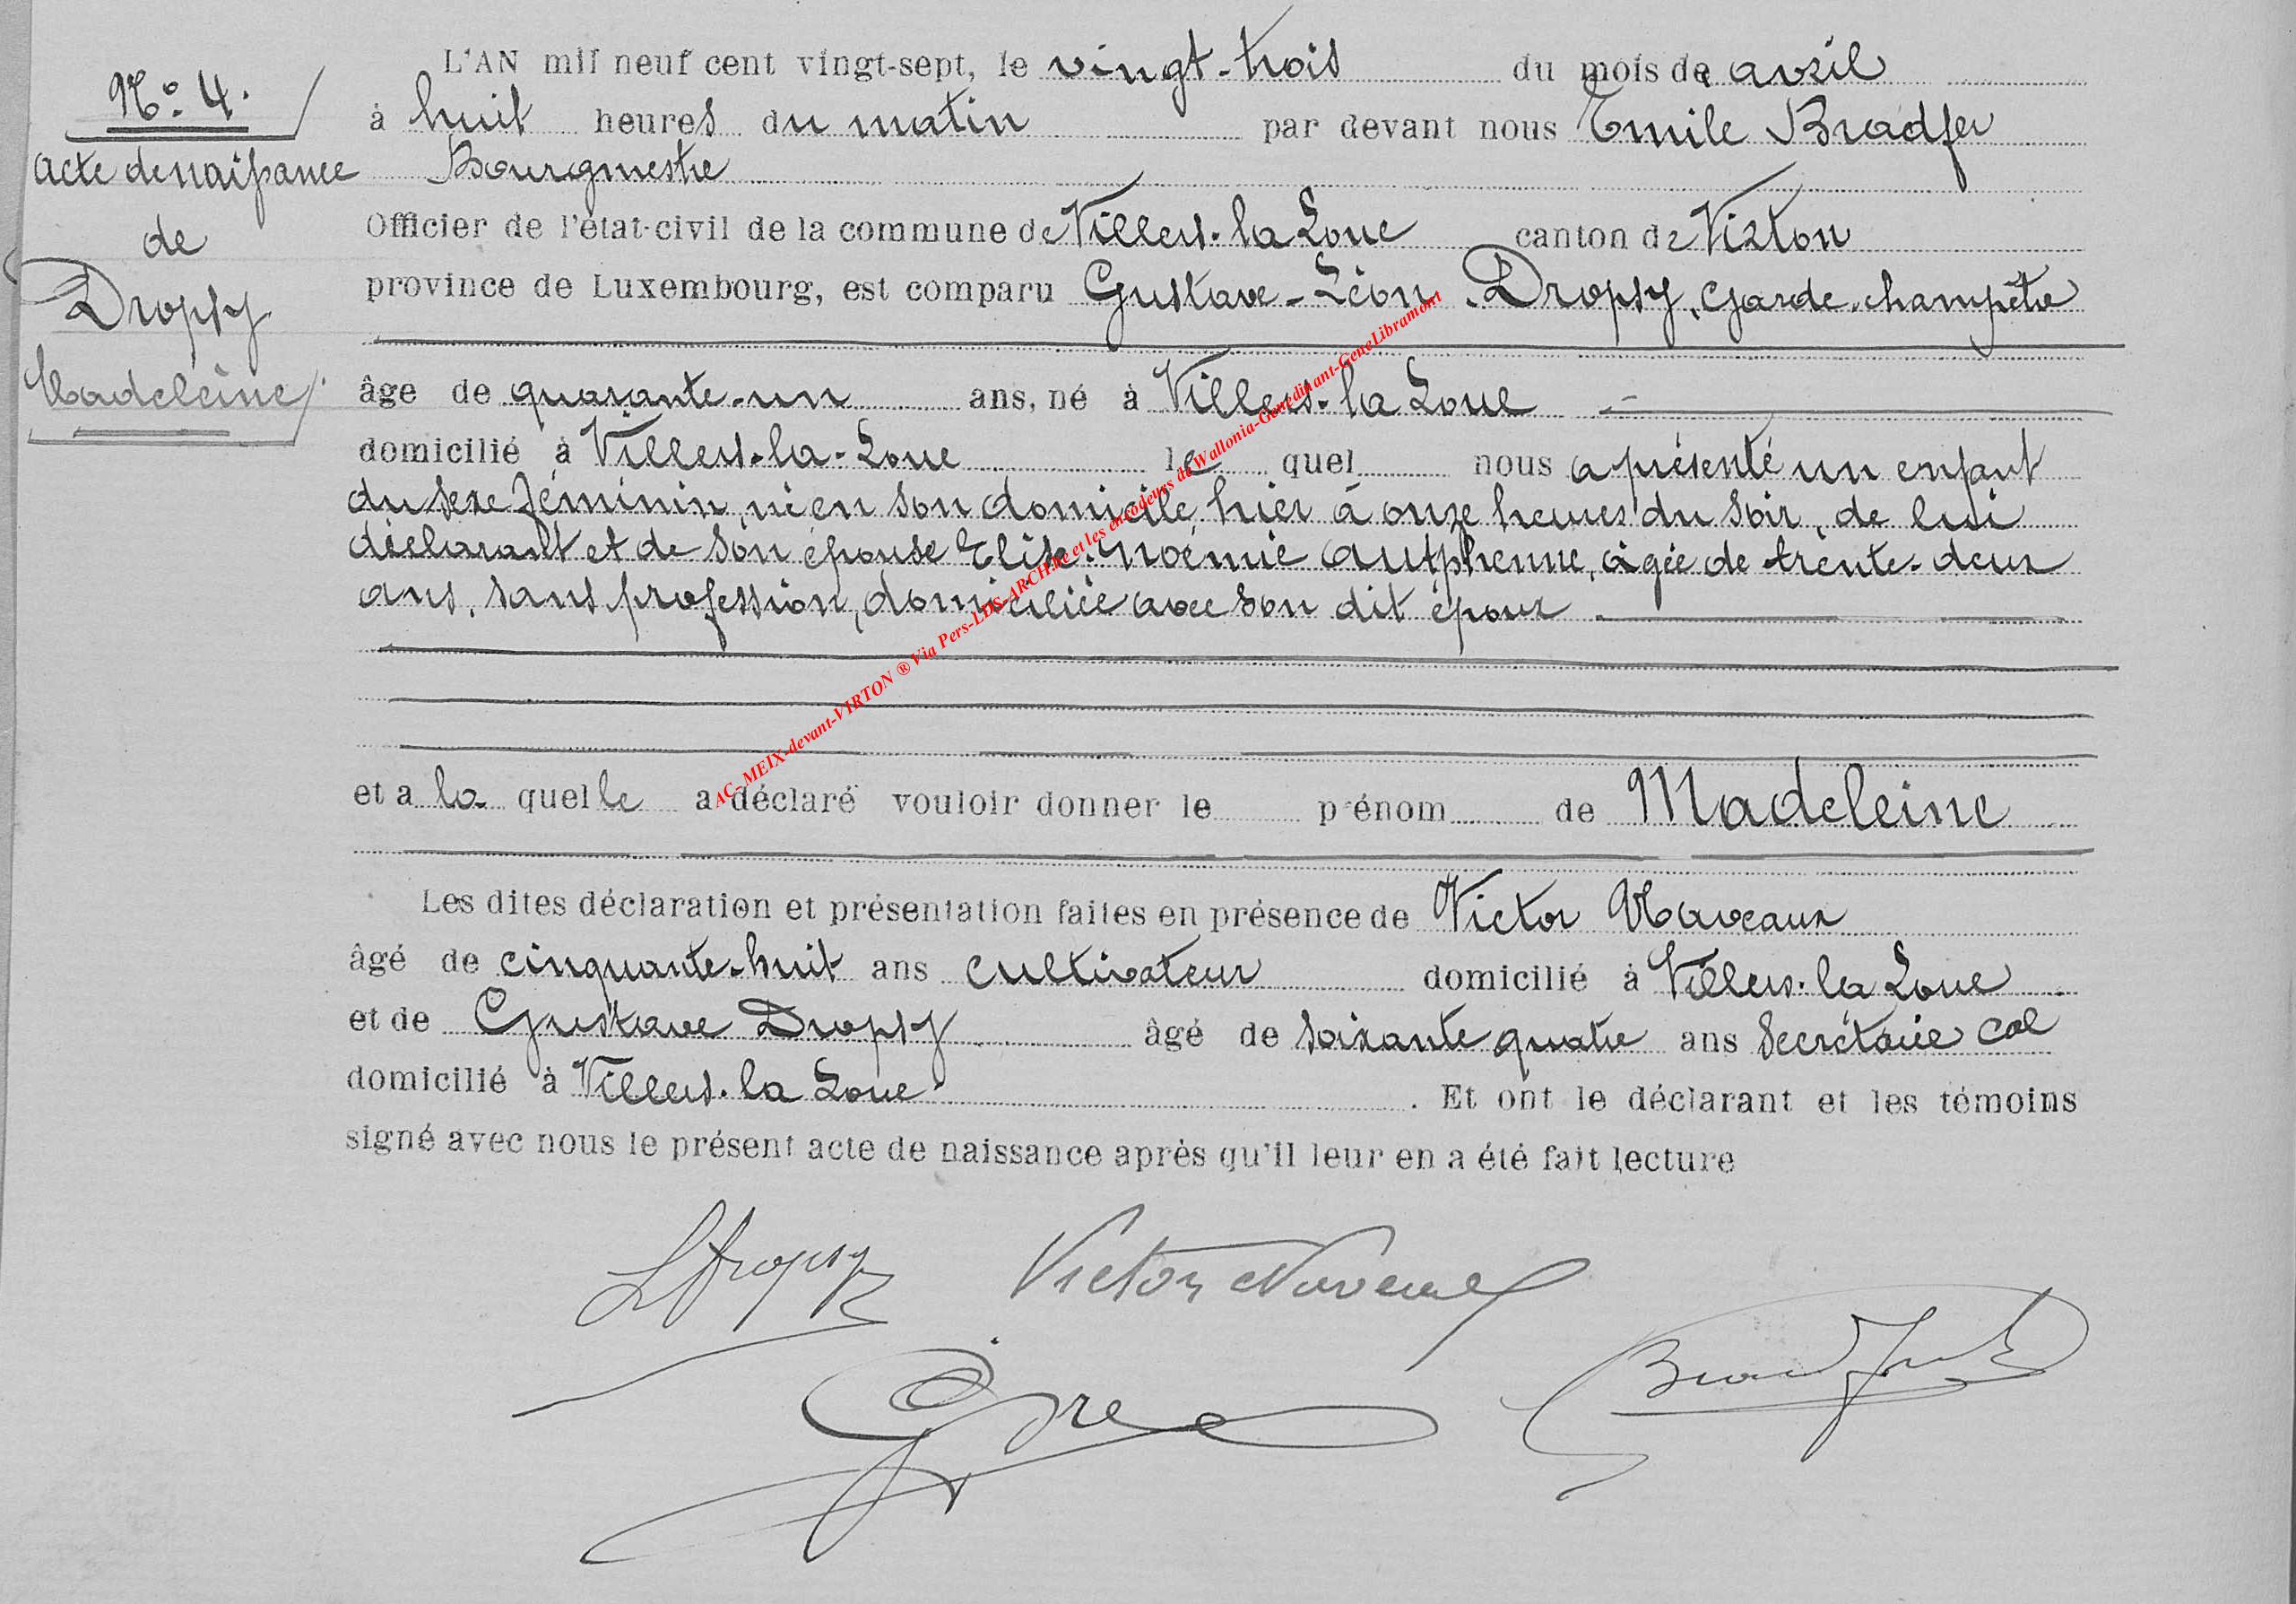 N° 4.
Acte de naissance
de
Dropsy
Madeleine
L'AN mil neuf cent vingt-sept, le vingt-trois du mois de avril
à huit heures du matin par devant nous Emile Bradfer
Bourgmestre
Officier de l'état-civil de la commune de Villers-la Loue canton de Virton
province de Luxembourg, est comparu Gustave-Léon Dropsy, Garde-champêtre
âge de quarante-un ans, né à Villers-la Loue
domicilié à Villers-la-Loue le quel nous a présenté un enfant
du sexe féminin, né en son domicile, hier à onze heures du soir, de lui
déclarant et de son épouse Elise-Noémie Authenne, âgée de trente-deux
ans, sans profession, domiciliée avec son dit époux
et a la quelle a déclaré vouloir donner le prénom de Madeleine
Les dites déclaration et présentation faites en présence de Victor Naveaux
âgé de cinquante-huit ans cultivateur domicilié à Villers-la Loue
et de Gustave Dropsy âgé de soixante quatre ans secrétaire cal
domicilié à Villers-la Loue. Et ont le déclarant et les témoins
signé avec nous le présent acte de naissance après qu'il leur en a été fait lecture
LDropsy Victor Naveaux
Bradfer
AC-MEIX-devant-VIRTON ® Via Pers-LDS-ARCH.be et les encodeurs de Wallonia-Genedinant-GeneLibramont